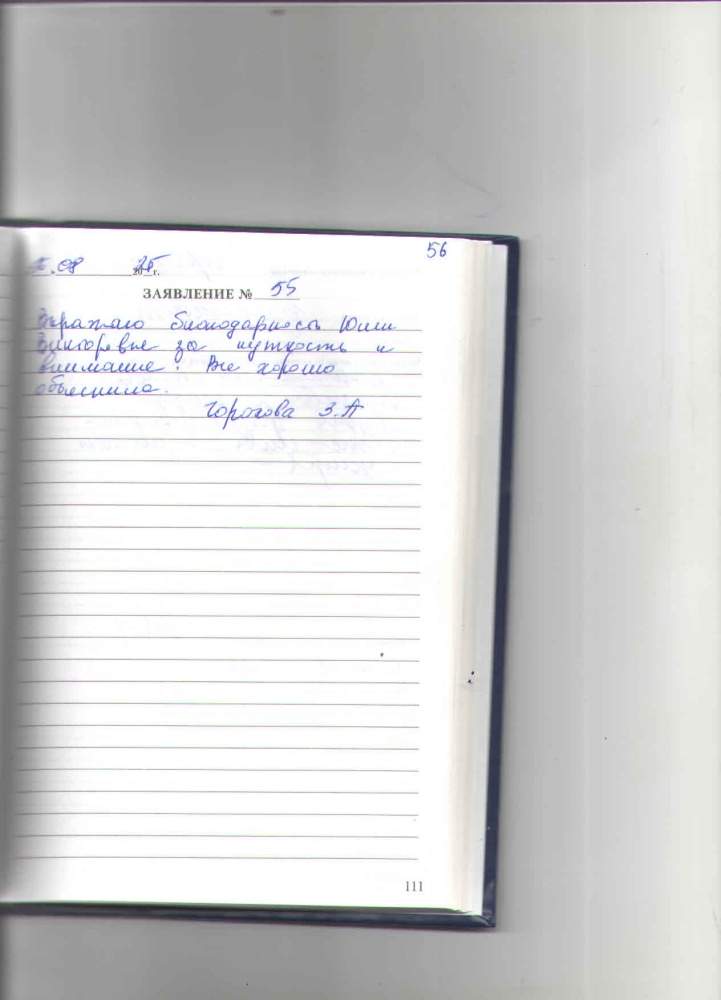 56
.08 2025 г.
ЗАЯВЛЕНИЕ № 55
Выражаю благодарность Юлии
Викторовне за чуткость и
внимание. Все хорошо
объяснила.
Горохова З.А
111